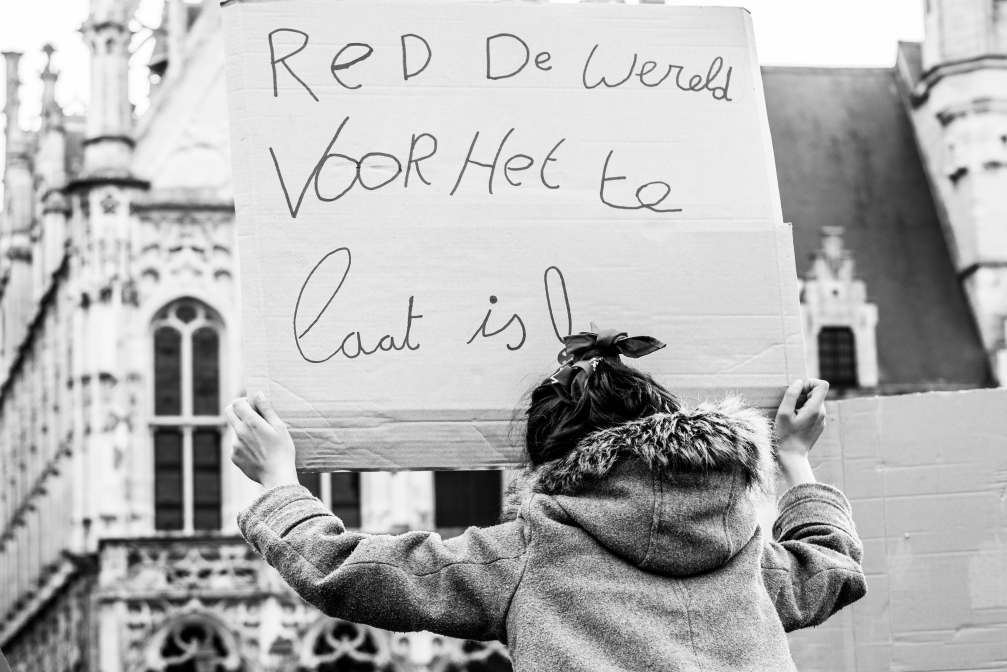 ReD De Wereld
VOORHet te
laat is!